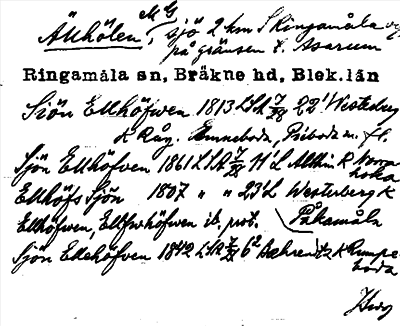 Ällhölen, M G, sjö 2 km S Ringamåla vg
på gränsen t. Asarum
Ringamåla sn, Bräkne hd, Blek.län
Siön Ellhöfwen 1813 LSA 7/28 22' Westerberg
K Råg. Enneboda, Piboda m. fl.
Sjön Ellhöfven 1861 LSA 7/28 11'L Ahlin K Norra
hoka
Ellhöfs Sjön 1807 " " 23'L Westerberg K
Ellhöfwen, Ellfwhöfwen ib. prot. Påkamåla
Sjön Ellehöfven 1842 LSA 7/28 6² Behrentz K Rumpe-
boda